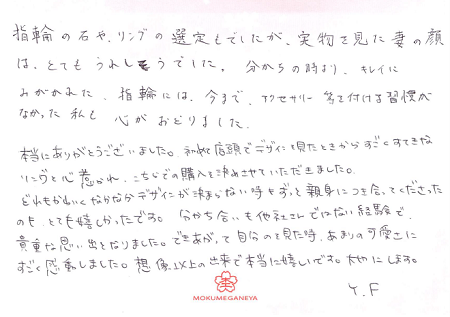 指輪の石や、リングの選定もでしたが、実物を見た妻の顔
は、とてもうれしそうでした。分かちの時より、キレイに
みがかれた、指輪には、今まで、アクセサリー 等を付ける習慣が
なかった私も 心がおどりました。
本当にありがとうございました。初めて店頭でデザインを見たときからすごくすてきな
リングと心惹かれ、こちらでの購入を決めさせていただきました。
どれもかわいくなかなかデザインが決まらない時もずっと親身につき合ってくださった
のも、とても嬉しかったです。分かち合いも他社さんではない経験で、
貴重な思い出となりました。できあがって自分のを見た時、あまりの可愛さに
すごく感動しました。想像以上の出来で本当に嬉しいです。大切にします。
Y.F
MOKUMEGANEYA